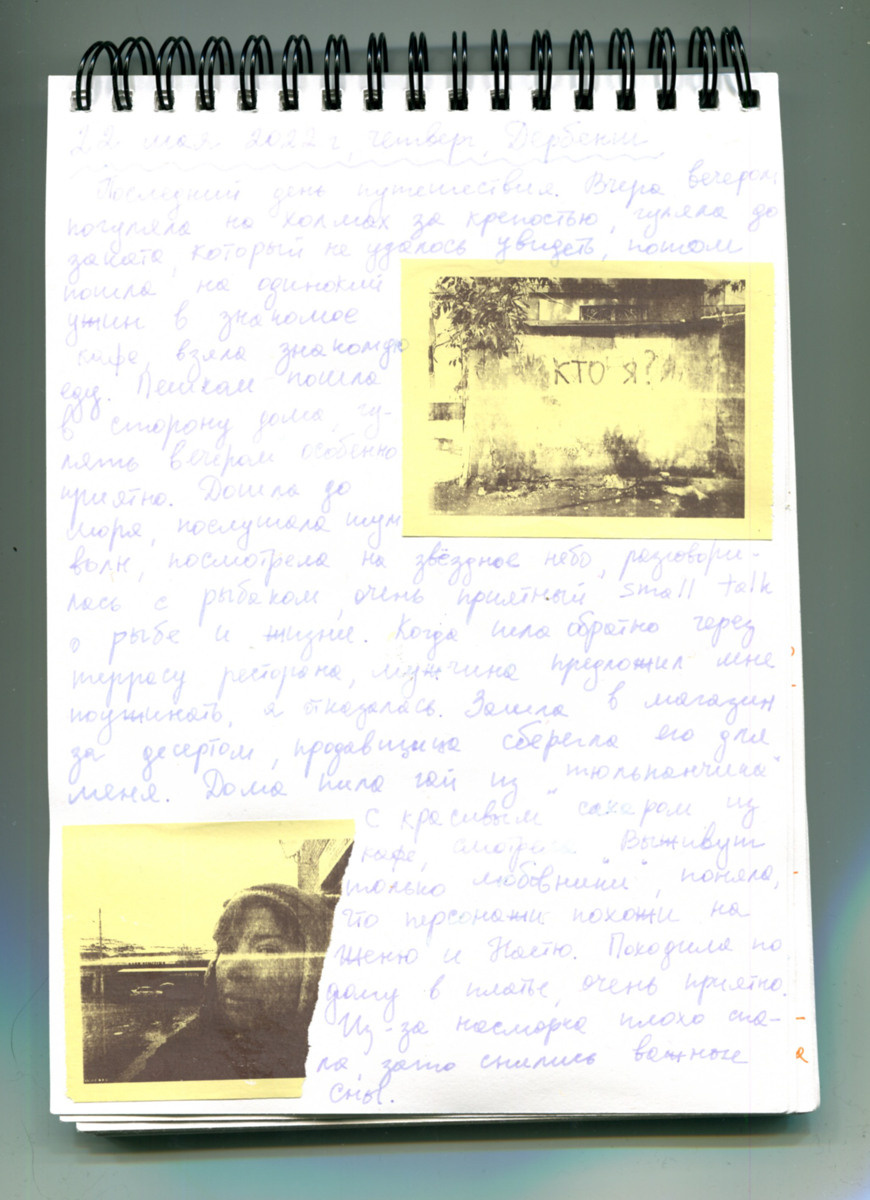 22 мая 2022 г, четверг, Дербент
Последний день путешествия. Вчера вечером
погуляла на холмах за крепостью, гуляла до
заката, который не удалось увидеть, потом
пошла на одинокий
ужин в знакомое
кафе, взяла знакомую
еду. Пешком пошла
в сторону дома, гу-
лять вечером особенно
приятно. Дошла до
моря, послушала шум
волн, посмотрела на звёздное небо, разговори-
лась с рыбаком, очень приятный small talk
о рыбе и жизни. Когда шла обратно через
террасу ресторана, мужчина предложил мне
поужинать, я отказалась. Зашла в магазин
за десертом, продавщица сберегла его для
меня. Дома пила чай из "тюльпанчика"
с красивым сахаром из
кафе, смотрела "Выживут
только любовники", поняла,
что персонажи похожи на
Женю и Настю. Походила по
дому в платье, очень приятно.
Из-за насморка плохо спа-
ла, зато снились важные
сны.
КТО Я?